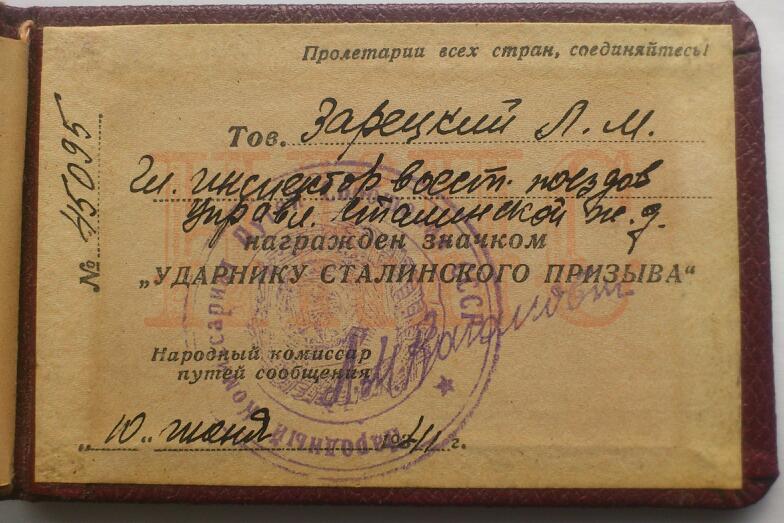 Пролетарии всех стран, соединяйтесь!
№ 45095
Тов. Зарецкий Л. М.
Гл. инспектор восст. поездов
Управл. Сталинской ж. д.
награжден значком
„УДАРНИКУ СТАЛИНСКОГО ПРИЗЫВА“
Народный комиссар
путей сообщения
Л. М. Каганович
„10„ июня 1941 г.
НКПС
Народный комиссариат Путей СССР